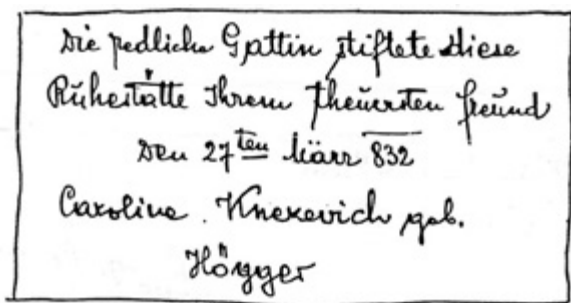 Die redliche Gattin stiftete diese
Ruhestätte Ihrem theuersten freund
Den 27ten März 832
Caroline. Knezevich geb.
Högger